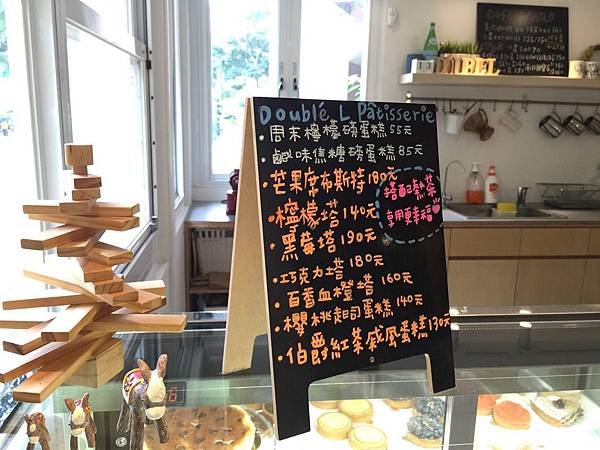 Doublé L Pâtisserie
・周末檸檬磅蛋糕 55元
・鹹味焦糖磅蛋糕 85元
・芒果席布斯特 180元
・檸檬塔 140元
・黑莓塔 190元
・巧克力塔 180元
・百香血橙塔 160元
・櫻桃起司蛋糕 140元
・伯爵紅茶戚風蛋糕 130元
搭配熱茶
享用更幸福
DOUBLE